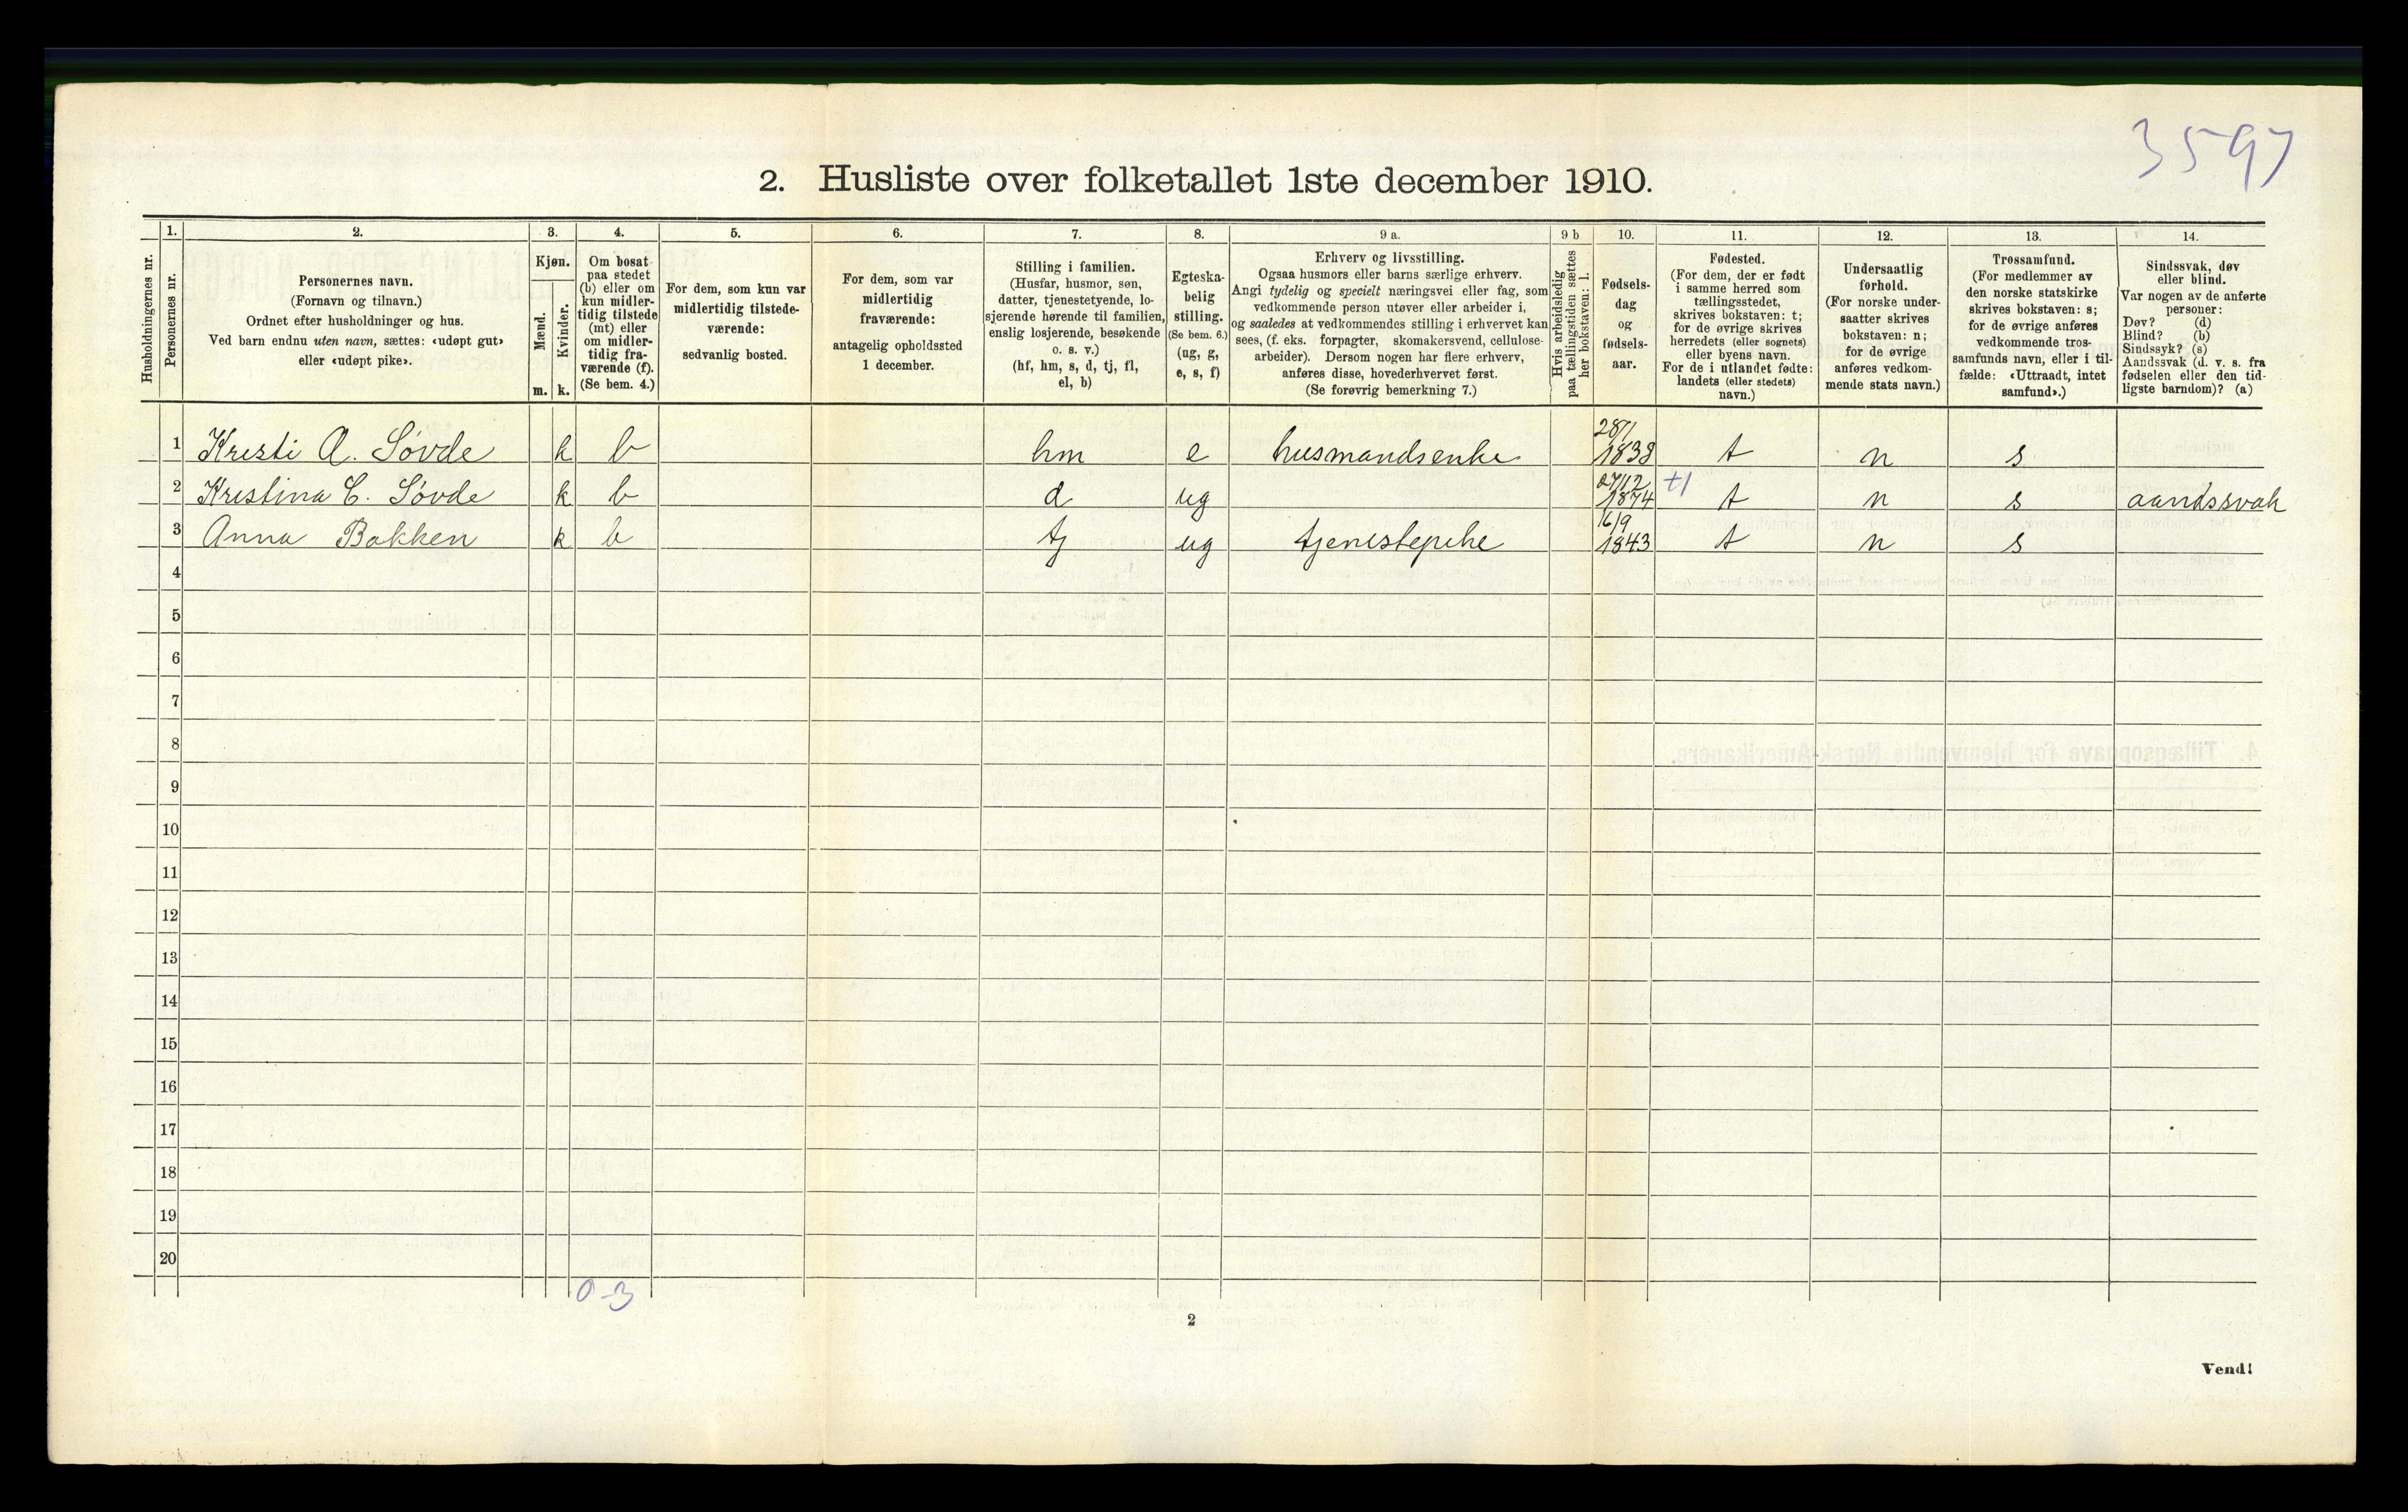 3597
2. Husliste over folketallet 1ste december 1910.
Husholdningernes nr.
1.
Personernes nr.
2.
Personernes navn.
(Fornavn og tilnavn.)
Ordnet efter husholdninger og hus.
Ved barn endnu uten navn, sættes: «udøpt gut»
eller «udøpt pike».
3.
Kjøn.
Mænd.
m.
Kvinder.
k.
4.
Om bosat
paa stedet
(b) eller om
kun midler-
tidig tilstede
(mt) eller
om midler-
tidig fra-
værende (f).
(Se bem. 4.)
5.
For dem, som kun var
midlertidig tilstede-
værende:
sedvanlig bosted.
6.
For dem, som var
midlertidig
fraværende:
antagelig opholdssted
1 december.
7.
Stilling i familien.
(Husfar, husmor, søn,
datter, tjenestetyende, lo-
sjerende hørende til familien,
enslig losjerende, besøkende
o. s. v.)
(hf, hm, s, d, tj, fl,
el, b)
8.
Egteska-
belig
stilling.
(Se bem. 6.)
(ug, g,
e, s, f)
9 a.
Erhverv og livsstilling.
Ogsaa husmors eller barns særlige erhverv.
Angi tydelig og specielt næringsvei eller fag, som
vedkommende person utøver eller arbeider i,
og saaledes at vedkommendes stilling i erhvervet kan
sees, (f. eks. forpagter, skomakersvend, cellulose-
arbeider). Dersom nogen har flere erhverv,
anføres disse, hovederhvervet først.
(Se forøvrig bemerkning 7.)
9 b
Hvis arbeidsledig
paa tællingstiden sættes
her bokstaven: l.
10.
Fødsels-
dag
og
fødsels-
aar.
11.
Fødested.
(For dem, der er født
i samme herred som
tællingsstedet,
skrives bokstaven: t;
for de øvrige skrives
herredets (eller sognets)
eller byens navn.
For de i utlandet fødte:
landets (eller stedets)
navn.)
12.
Undersaatlig
forhold.
(For norske under-
saatter skrives
bokstaven: n;
for de øvrige
anføres vedkom-
mende stats navn.)
13.
Trossamfund.
(For medlemmer av
den norske statskirke
skrives bokstaven: s;
for de øvrige anføres
vedkommende tros-
samfunds navn, eller i til-
fælde: «Uttraadt, intet
samfund».)
14.
Sindssvak, døv
eller blind.
Var nogen av de anførte
personer:
Døv? (d)
Blind? (b)
Sindssyk? (s)
Aandssvak (d. v. s. fra
fødselen eller den tid-
ligste barndom)? (a)
1 Kristi A. Søvde k b hm e husmandsenke 28/1 1838 t n s
2 Kristina C. Søvde k b d ug 27/12 1874 t1 t n s aandssvak
3 Anna Bakken k b tj ug tjenestepike 16/9 1843 t n s
4
5
6
7
8
9
10
11
12
13
14
15
16
17
18
19
20
0-3
2
Vend!